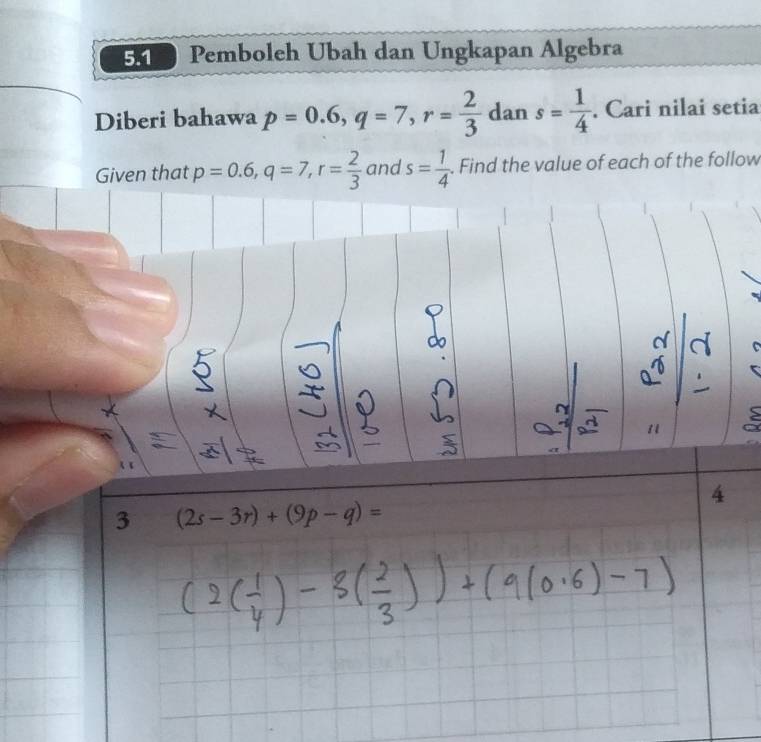 5.1 Pemboleh Ubah dan Ungkapan Algebra
Diberi bahawa p = 0.6, q = 7, r = 2/3 dan s = 1/4. Cari nilai setia
Given that p = 0.6, q = 7, r = 2/3 and s = 1/4. Find the value of each of the follow
x 100
132 (40)
100
53.80
P22
P21
= P22
1.2
4
3 (2s – 3r) + (9p – q) =
(2(1/4) – 3(2/3)) + (9(0.6) – 7)